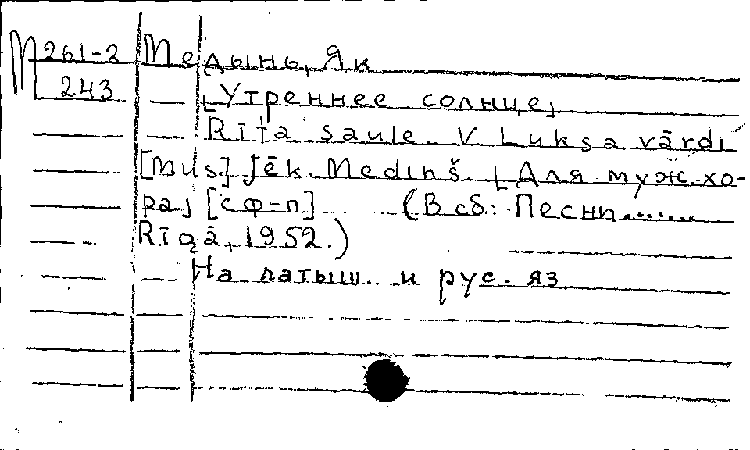 М 261-2 Медынь, Як
243 [Утреннее солнце]
Rīta saule. V. Luksa vārdi
[mus.] Jēk. Mediņš. [Для муж. хо-
ра] [с ф-п] (В сб: Песни......
Rīgā, 1952.)
На латыш. и рус. яз